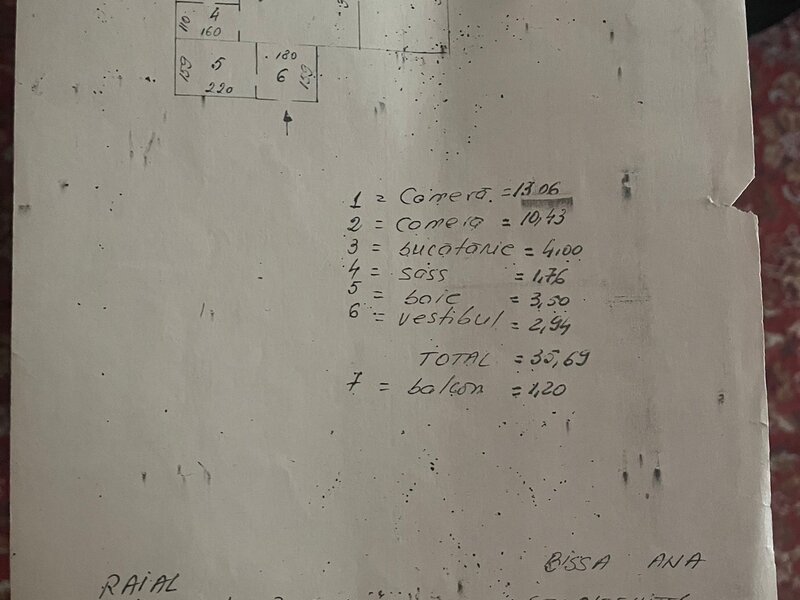 110 4
160
159 5
220
180
6
1 = Cameră. = 13.06
2 = camera = 10,43
3 = bucatărie = 4,00
4 = sass = 1,76
5 = baie = 3,50
6 = vestibul = 2,94
TOTAL = 35,69
7 = balcon = 1,20
BISSA ANA
RAIAL